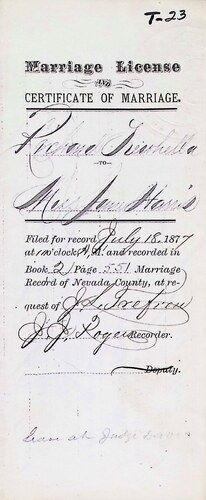 T-23
Marriage License
AND
CERTIFICATE OF MARRIAGE.
Richard
—TO—
Miss Jane Harris
Filed for record July 18, 1877
at o'clock A.M. and recorded in
Book 2 Page 551 Marriage
Record of Nevada County, at re-
quest of J. L. Trefren
J. J. Rogers Recorder.
Deputy.
at Judge